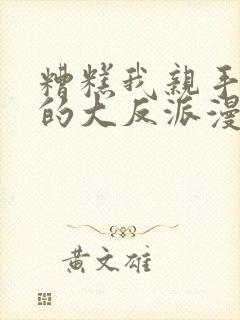 糟糕我亲手
的大反派漫
黄文雄